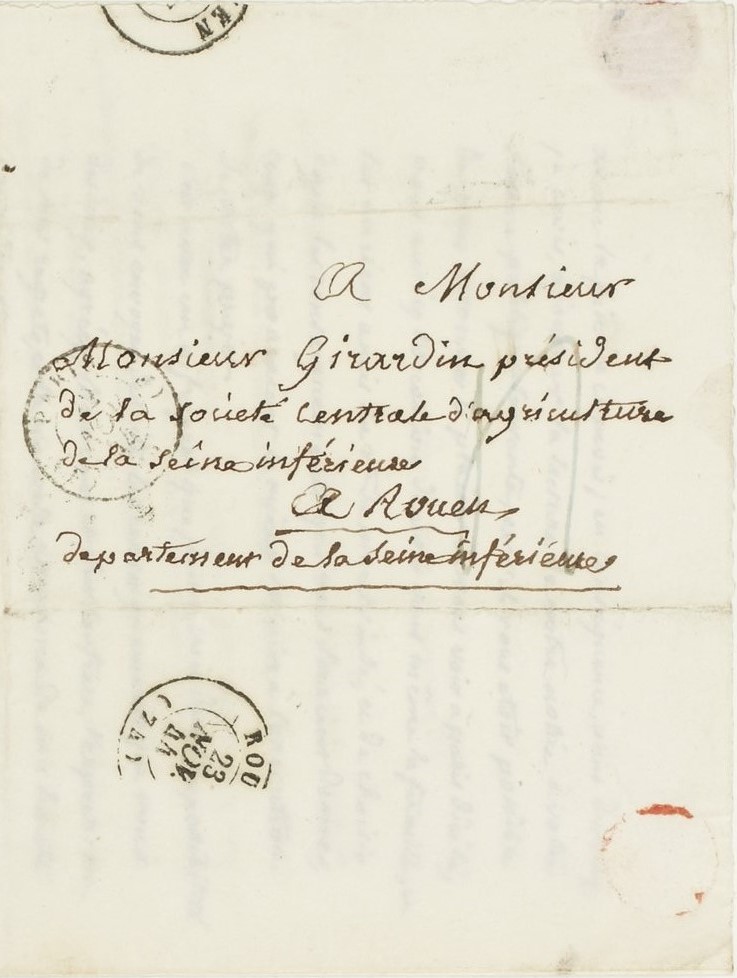 EN
A Monsieur
Monsieur Girardin président
de la société Centrale d'agriculture
de la seine inférieure
A Rouen
departement de la seine inférieure
PARIS
ROU
23
NOV.
44
(74)